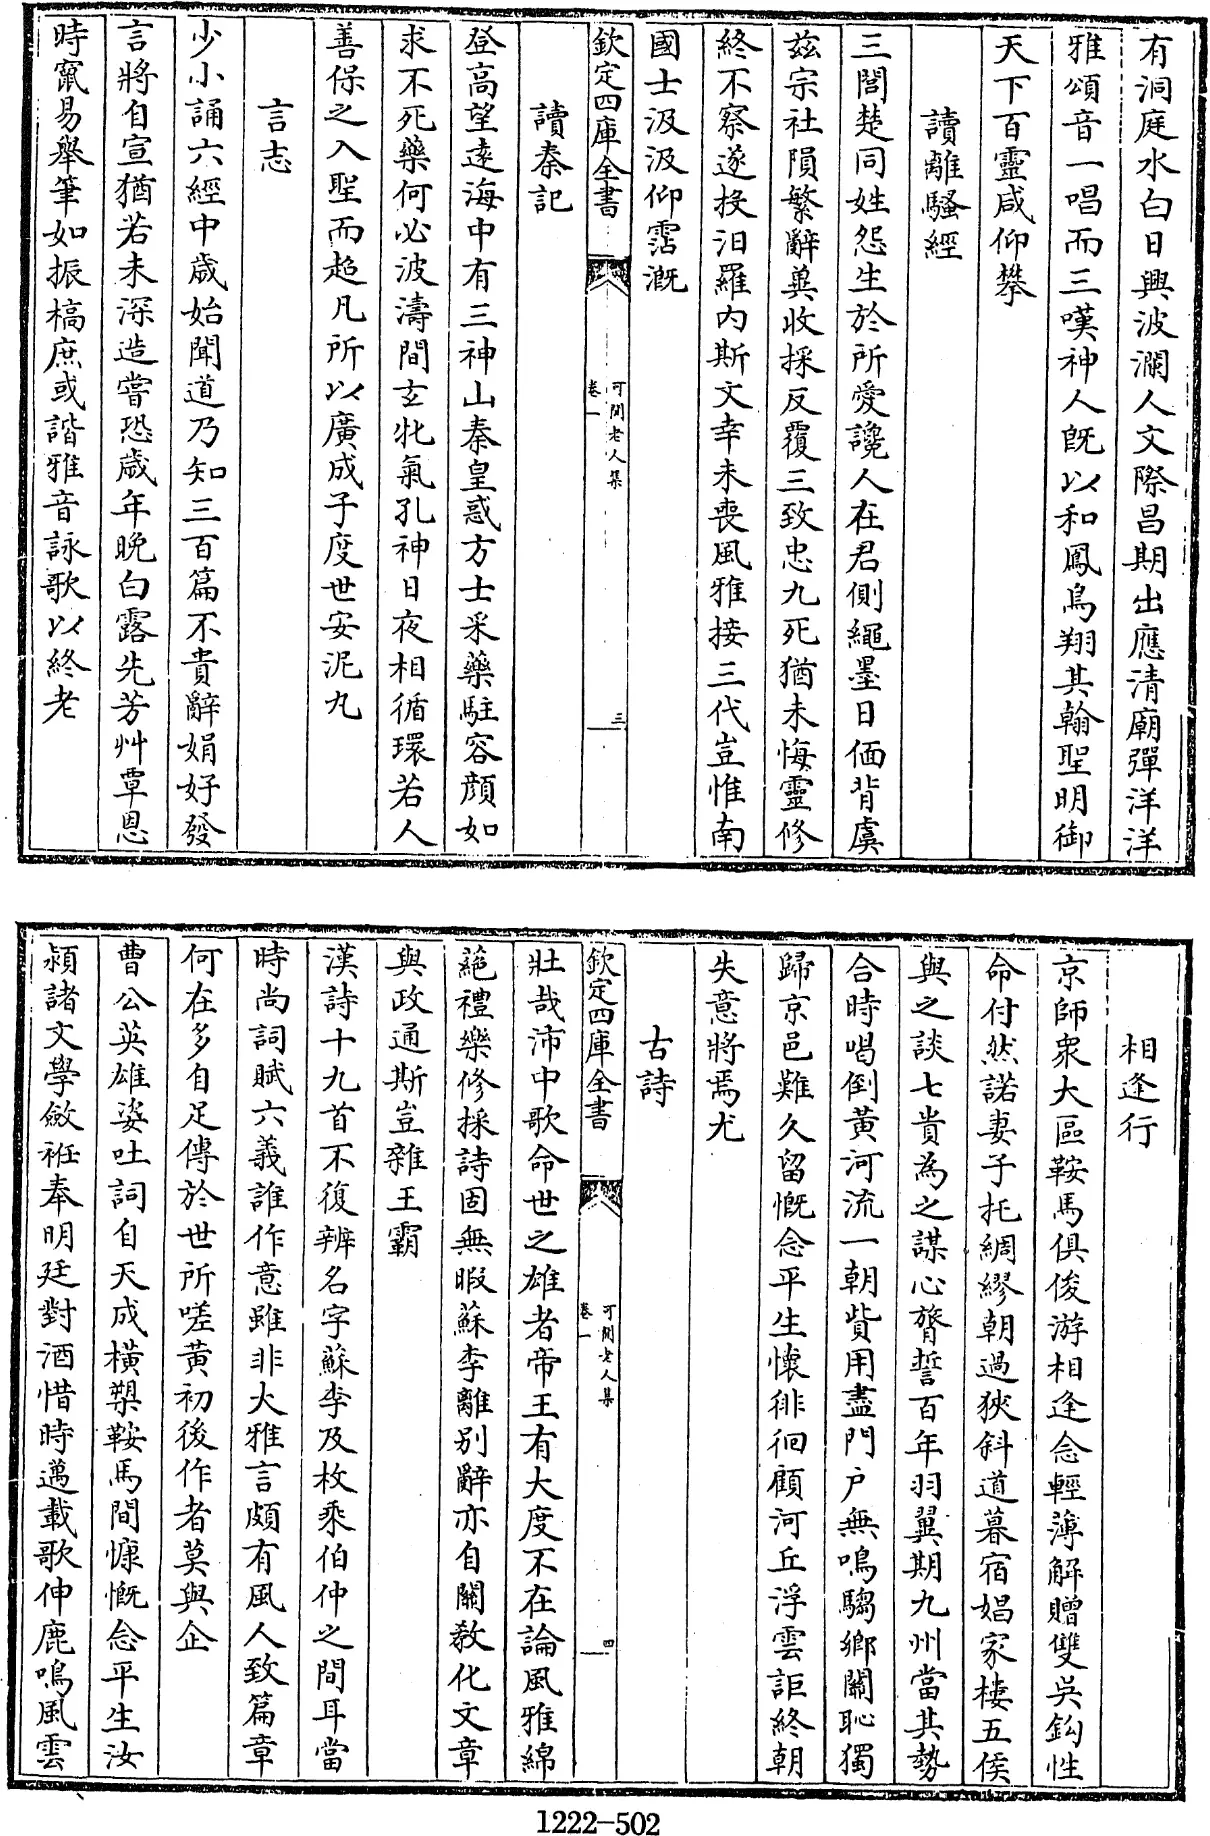 有洞庭水白日興波瀾人文際昌期出應清廟彈洋洋
雅頌音一唱而三嘆神人旣以和鳳鳥翔其翰聖明御
天下百靈咸仰攀
讀離騷經
三閭楚同姓怨生於所愛讒人在君側繩墨日偭背虞
兹宗社隕繁辭兾收採反覆三致忠九死猶未悔靈修
終不察遂投汨羅內斯文幸未喪風雅接三代豈惟南
國士汲汲仰霑溉
欽定四庫全書
可閒老人集
卷一
三
讀秦記
登高望遠海中有三神山秦皇惑方士采藥駐容顔如
求不死藥何必波濤間玄牝氣孔神日夜相循環若人
善保之入聖而超凡所以廣成子度世安泥丸
言志
少小誦六經中歲始聞道乃知三百篇不貴辭娟好發
言將自宣猶若未深造嘗恐歲年晚白露先芳艸覃思
時竄易舉筆如振槁庶或諧雅音詠歌以終老
相逢行
京師衆大區鞍馬俱俊游相逢念輕薄解贈雙吳鈎性
命付然諾妻子托綢繆朝過狹斜道暮宿娼家樓五侯
與之談七貴為之謀心膂誓百年羽翼期九州當其勢
合時唱倒黃河流一朝貲用盡門户無鳴騶鄉關恥獨
歸京邑難久留慨念平生懷徘徊顧河丘浮雲詎終朝
失意將焉尤
古詩
欽定四庫全書
可閒老人集
卷一
四
壯哉沛中歌命世之雄者帝王有大度不在論風雅綿
蕝禮樂修採詩固無暇蘇李離别辭亦自關敎化文章
與政通斯豈雜王霸
漢詩十九首不復辨名字蘇李及枚乘伯仲之間耳當
時尚詞賦六義誰作意雖非大雅言頗有風人致篇章
何在多自足傳於世所嗟黃初後作者莫與企
曹公英雄姿吐詞自天成橫槊鞍馬間慷慨念平生汝
潁諸文學斂袵奉明廷對酒惜時邁載歌伸鹿鳴風雲
1222-502